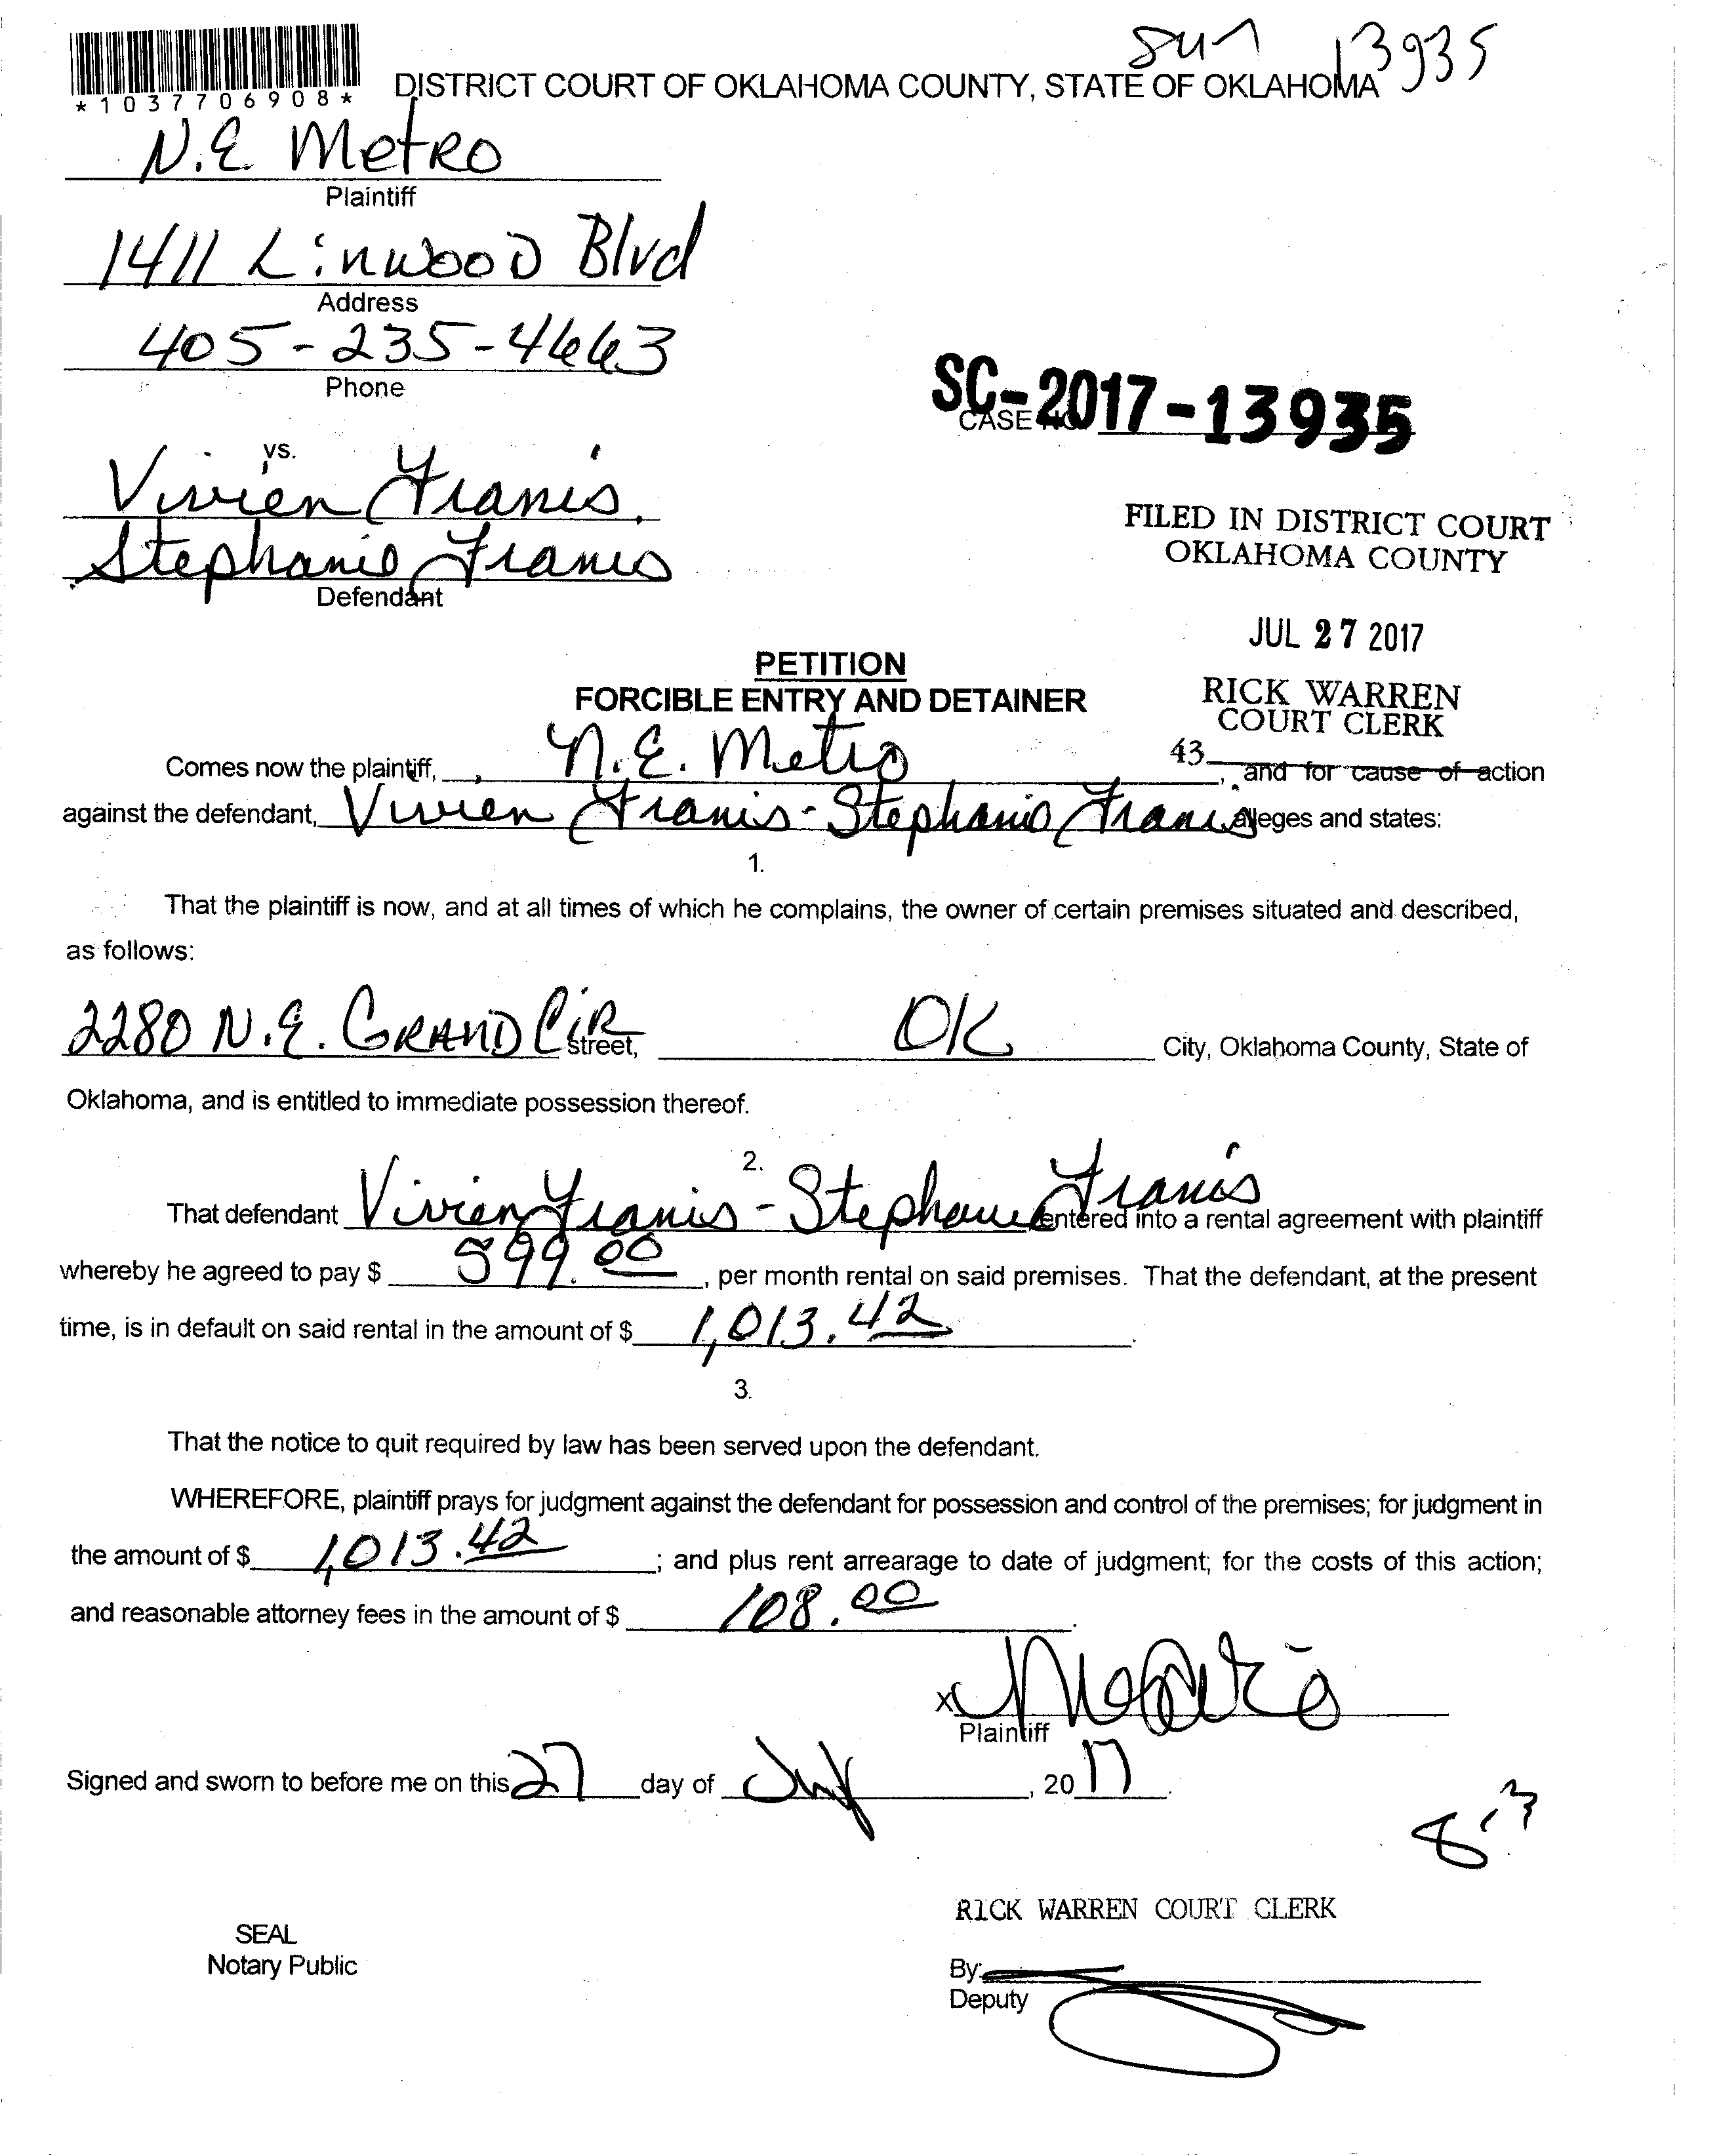 13935
*1037706908*
DISTRICT COURT OF OKLAHOMA COUNTY, STATE OF OKLAHOMA
N.E. Metro
Plaintiff
1411 Linwood Blvd
Address
405-235-4663
Phone
SC-2017-13935
CASE NO.
vs.
Vivien Franis.
Stephanie Franis
Defendant
FILED IN DISTRICT COURT
OKLAHOMA COUNTY
JUL 27 2017
RICK WARREN
COURT CLERK
43
PETITION
FORCIBLE ENTRY AND DETAINER
Comes now the plaintiff, N.E. Metro, and for cause of action
against the defendant, Vivien Franis - Stephanie Franis alleges and states:
1.
That the plaintiff is now, and at all times of which he complains, the owner of certain premises situated and described,
as follows:
2280 N.E. GRAND CIR street, OK City, Oklahoma County, State of
Oklahoma, and is entitled to immediate possession thereof.
2.
That defendant Vivien Franis - Stephanie Franis entered into a rental agreement with plaintiff
whereby he agreed to pay $ 599.00, per month rental on said premises. That the defendant, at the present
time, is in default on said rental in the amount of $ 1,013.42.
3.
That the notice to quit required by law has been served upon the defendant.
WHEREFORE, plaintiff prays for judgment against the defendant for possession and control of the premises; for judgment in
the amount of $ 1,013.42; and plus rent arrearage to date of judgment; for the costs of this action;
and reasonable attorney fees in the amount of $ 108.00.
X
Plaintiff
Signed and sworn to before me on this 27 day of July, 2017.
RICK WARREN COURT CLERK
SEAL
Notary Public
By:
Deputy